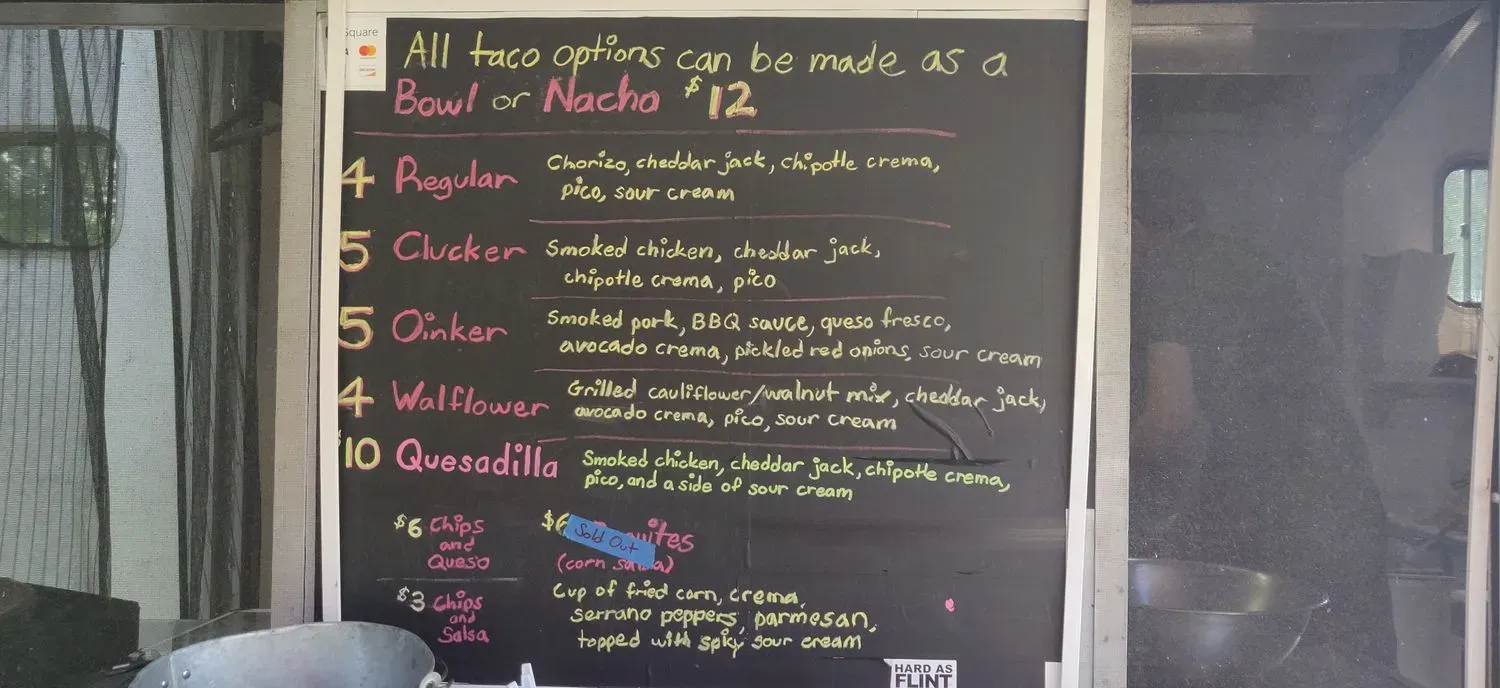 Square
All taco options can be made as a
Bowl or Nacho $12
4 Regular Chorizo, cheddar jack, chipotle crema,
pico, sour cream
5 Clucker Smoked chicken, cheddar jack,
chipotle crema, pico
5 Oinker Smoked pork, BBQ sauce, queso fresco,
avocado crema, pickled red onions, sour cream
4 Walflower Grilled cauliflower/walnut mix, cheddar jack,
avocado crema, pico, sour cream
$10 Quesadilla Smoked chicken, cheddar jack, chipotle crema,
pico, and a side of sour cream
$6 Chips
and
Queso
$6
Sold Out
(corn salsa)
Cup of fried corn, crema,
serrano peppers, parmesan,
topped with spiky sour cream
$3 Chips
and
Salsa
HARD AS
FLINT